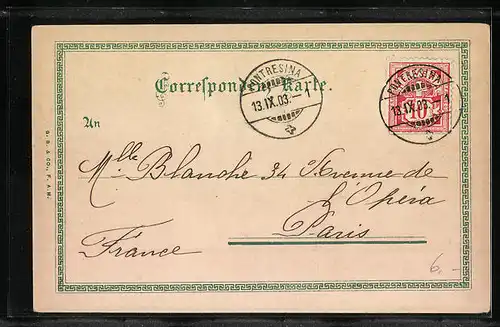 Correspondenz-Karte.
PONTRESINA
13.IX.03. 1
PONTRESINA
13.IX.03. 1
10
An
Mlle Blanche 34 Avenue de
l'Opéra
Paris
France
G. B. & CO., F. A. M.
6,-